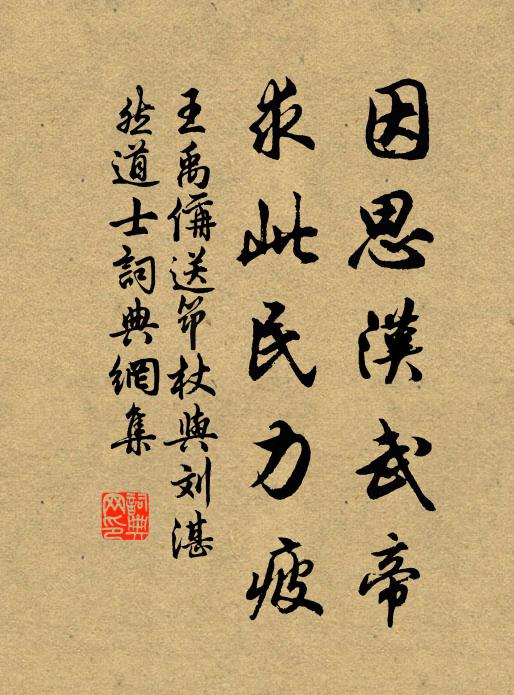 因思漢武帝
求此民力疲
王禹偁送筇杖與刘湛
然道士詞典網集
詞典
网印